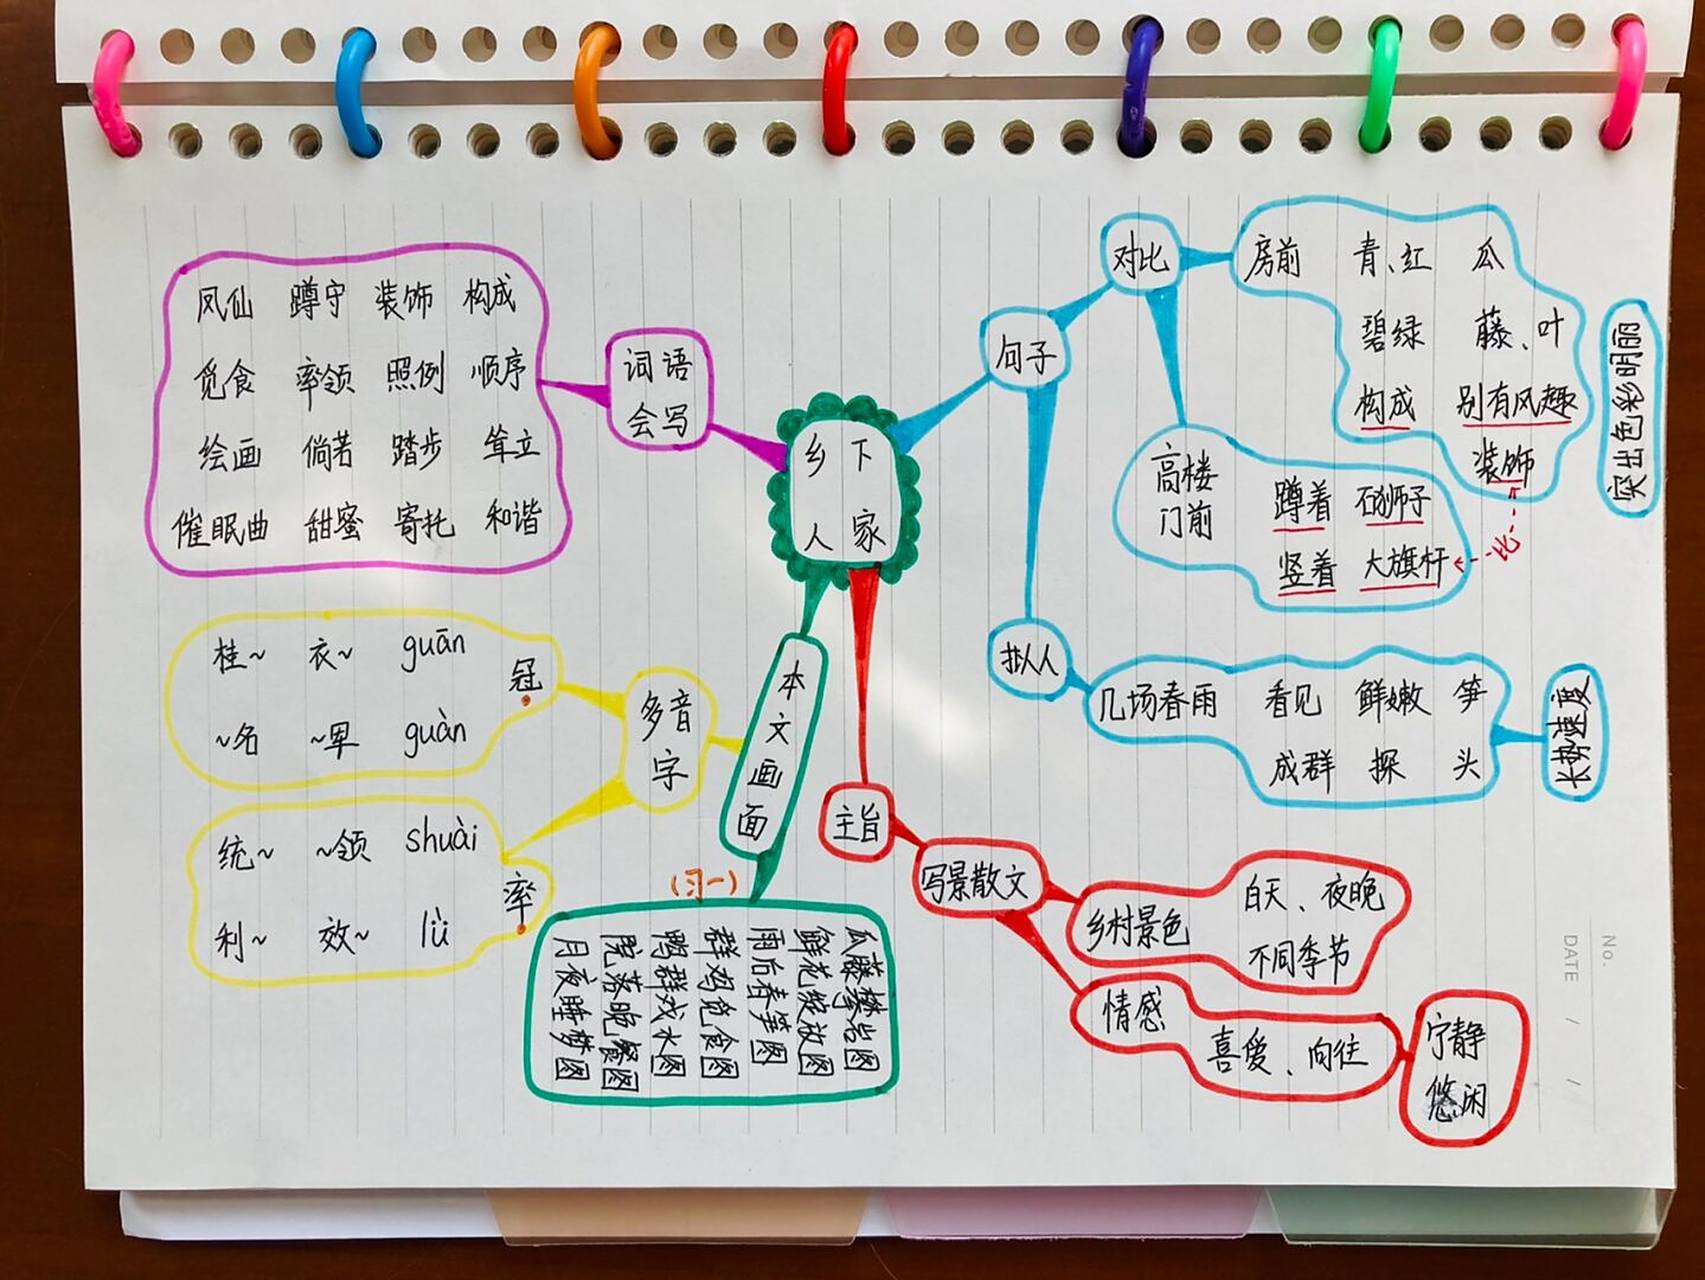 乡下
人家
词语
会写
凤仙 蹲守 装饰 构成
觅食 率领 照例 顺序
绘画 倘若 踏步 耸立
催眠曲 甜蜜 寄托 和谐
多音
字
冠
桂~ 衣~ guān
~名 ~军 guàn
率
统~ ~领 shuài
利~ 效~ lǜ
本文画面
(习一)
瓜藤攀岩图
鲜花绽放图
雨后春笋图
群鸡觅食图
鸭群戏水图
院落晚餐图
月夜睡梦图
句子
对比
房前 青、红 瓜
碧绿 藤、叶
构成 别有风趣
装饰
突出色彩明丽
高楼
门前
蹲着 石狮子
竖着 大旗杆
比
拟人
几场春雨 看见 鲜嫩 笋
成群 探 头
长势速度
主旨
写景散文
乡村景色
白天、夜晚
不同季节
情感
喜爱、向往
宁静
悠闲
No.
DATE / /